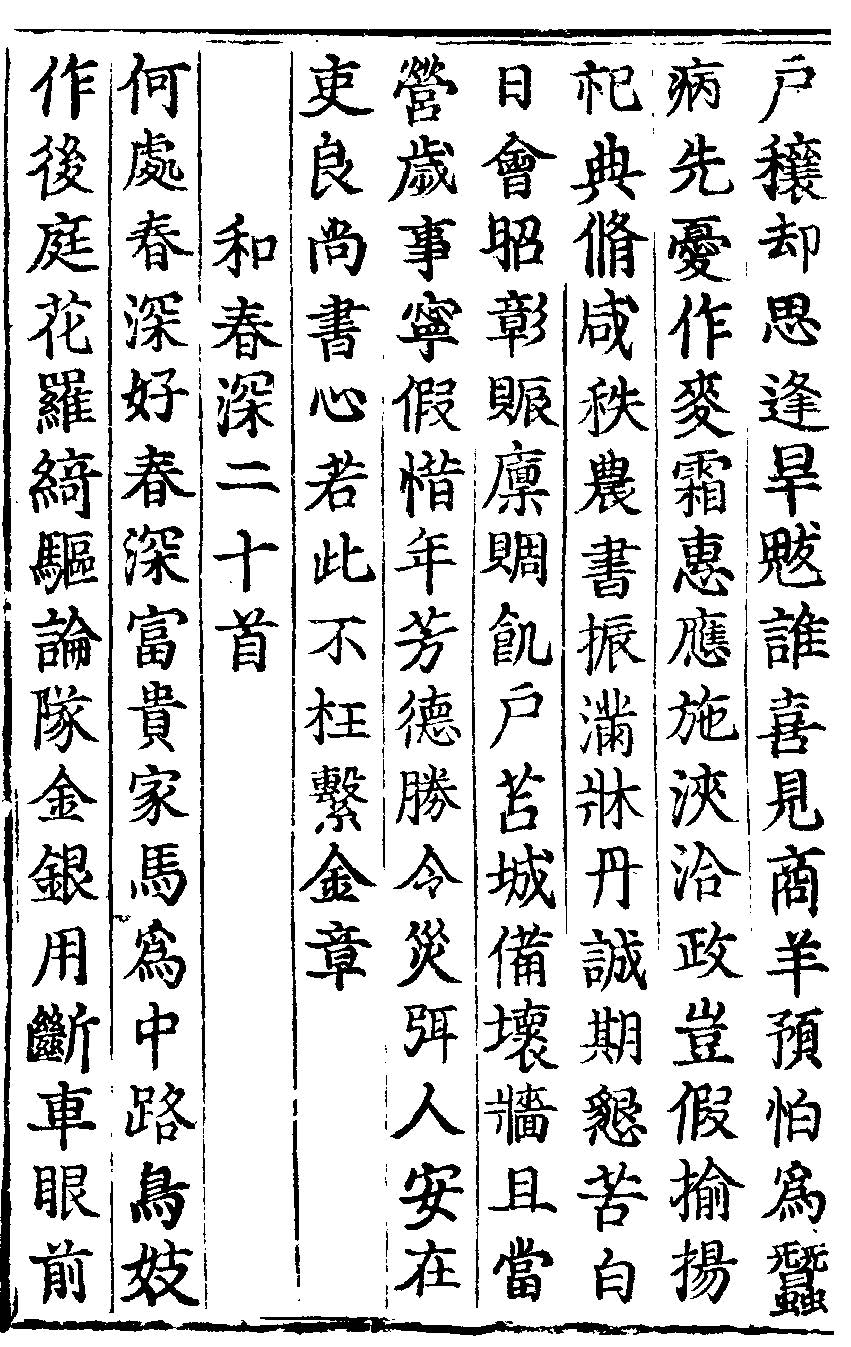 戶穰却思逢旱魃誰喜見商羊預怕爲蠶
病先憂作麥霜惠應施浹洽政豈假揄揚
祀典脩咸秩農書振滿牀丹誠期懇苦白
日會昭彰賑廩賙飢戶苫城備壞牆且當
營歲事寧假惜年芳德勝令災弭人安在
吏良尚書心若此不枉繫金章
和春深二十首
何處春深好春深富貴家馬爲中路鳥妓
作後庭花羅綺驅論隊金銀用斷車眼前